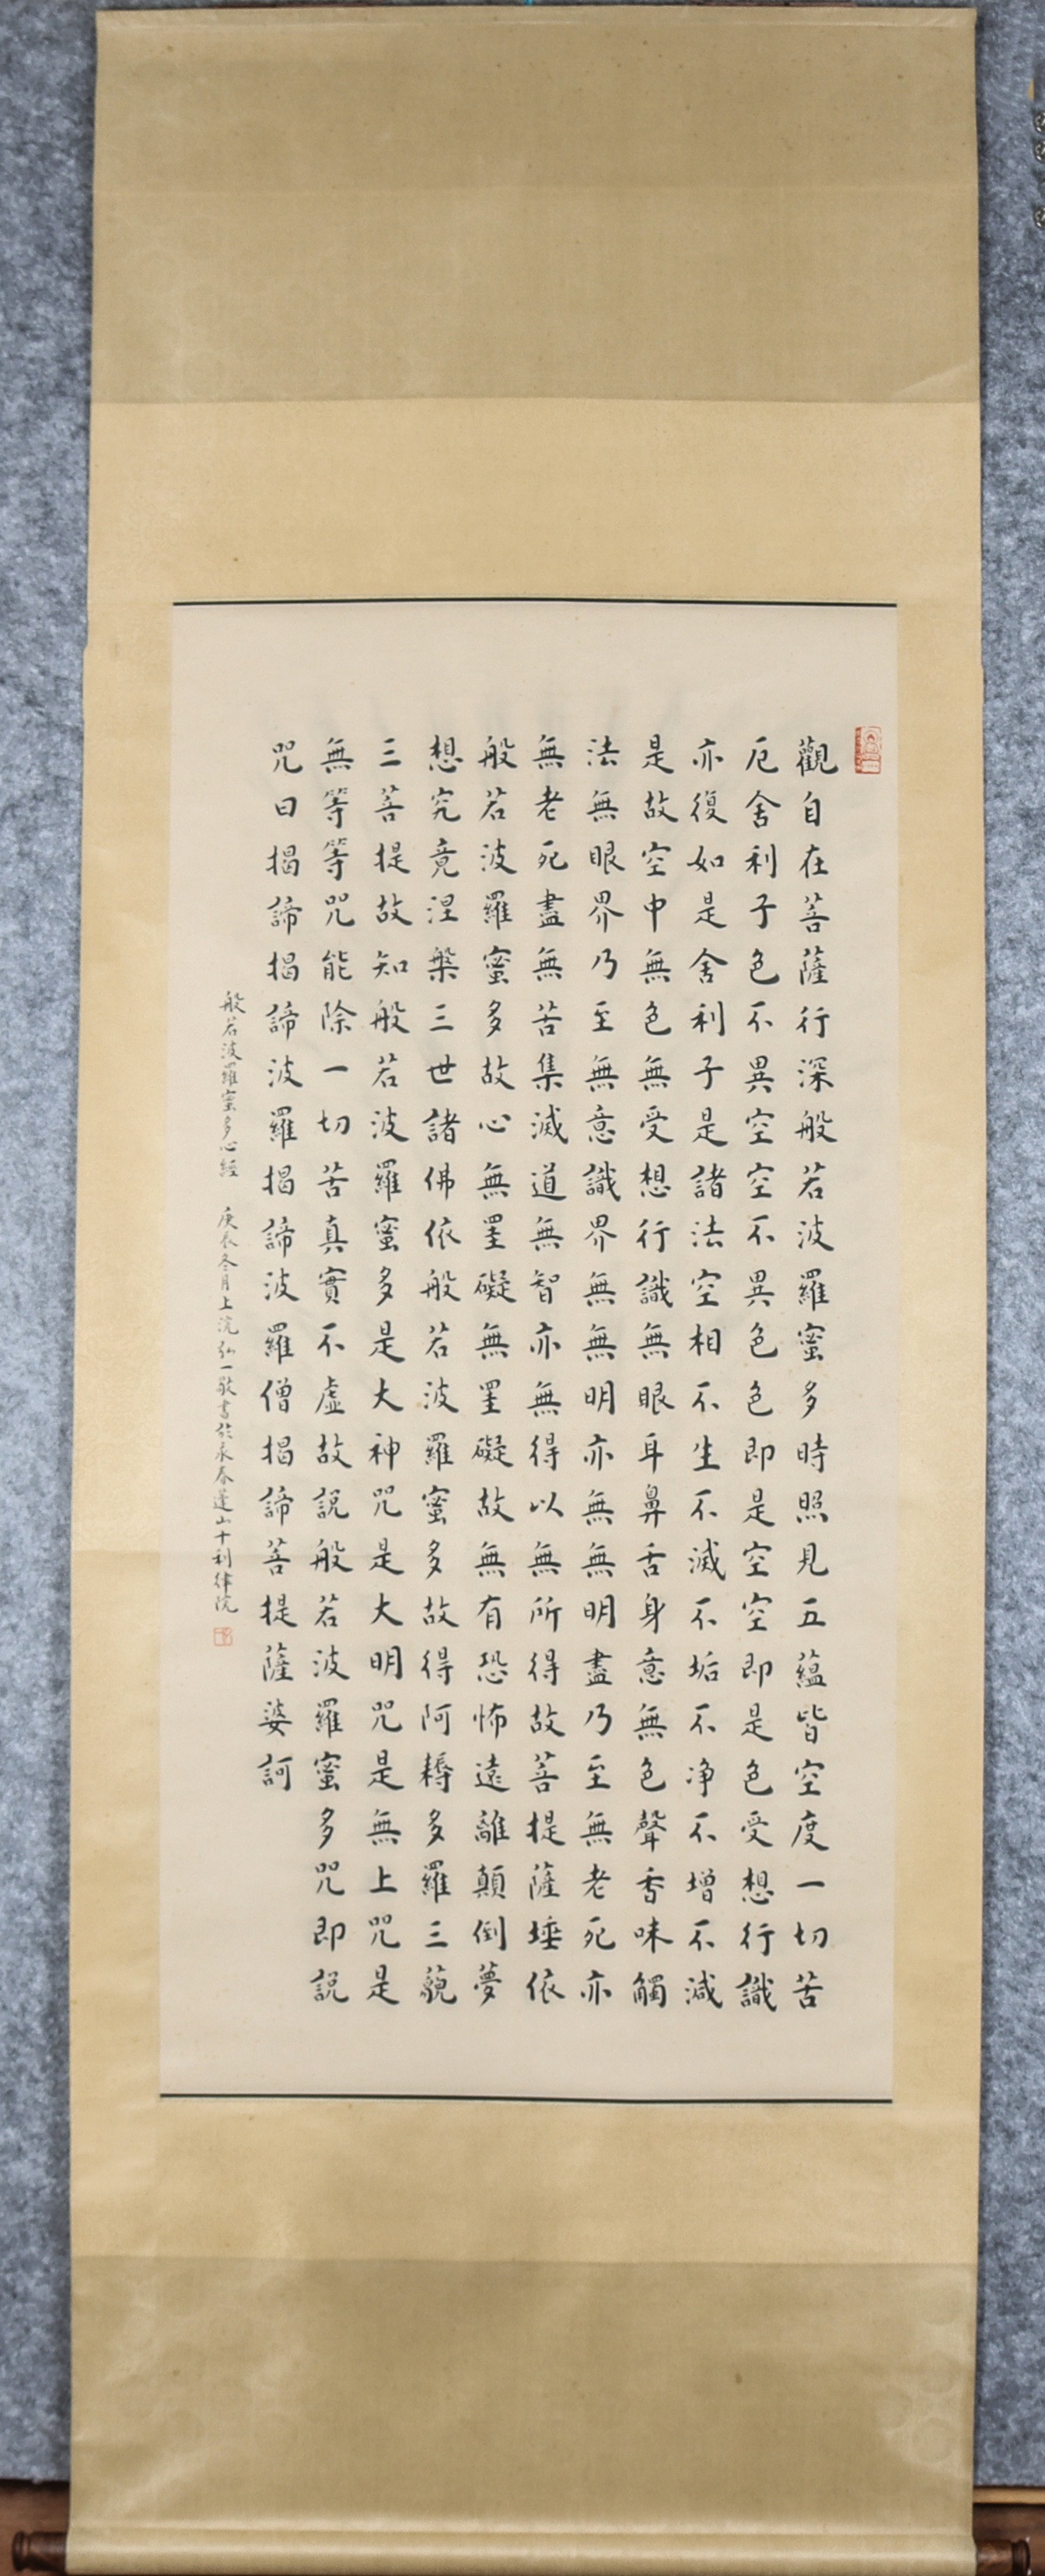 觀自在菩薩行深般若波羅蜜多時照見五蘊皆空度一切苦
厄舍利子色不異空空不異色色即是空空即是色受想行識
亦復如是舍利子是諸法空相不生不滅不垢不净不增不減
是故空中無色無受想行識無眼耳鼻舌身意無色聲香味觸
法無眼界乃至無意識界無無明亦無無明盡乃至無老死亦
無老死盡無苦集滅道無智亦無得以無所得故菩提薩埵依
般若波羅蜜多故心無罣礙無罣礙故無有恐怖遠離顛倒夢
想究竟涅槃三世諸佛依般若波羅蜜多故得阿耨多羅三藐
三菩提故知般若波羅蜜多是大神咒是大明咒是無上咒是
無等等咒能除一切苦真實不虛故說般若波羅蜜多咒即說
咒曰揭諦揭諦波羅揭諦波羅僧揭諦菩提薩婆訶
般若波羅蜜多心經 庚辰冬月上浣弘一敬書於永春蓬山十利律院